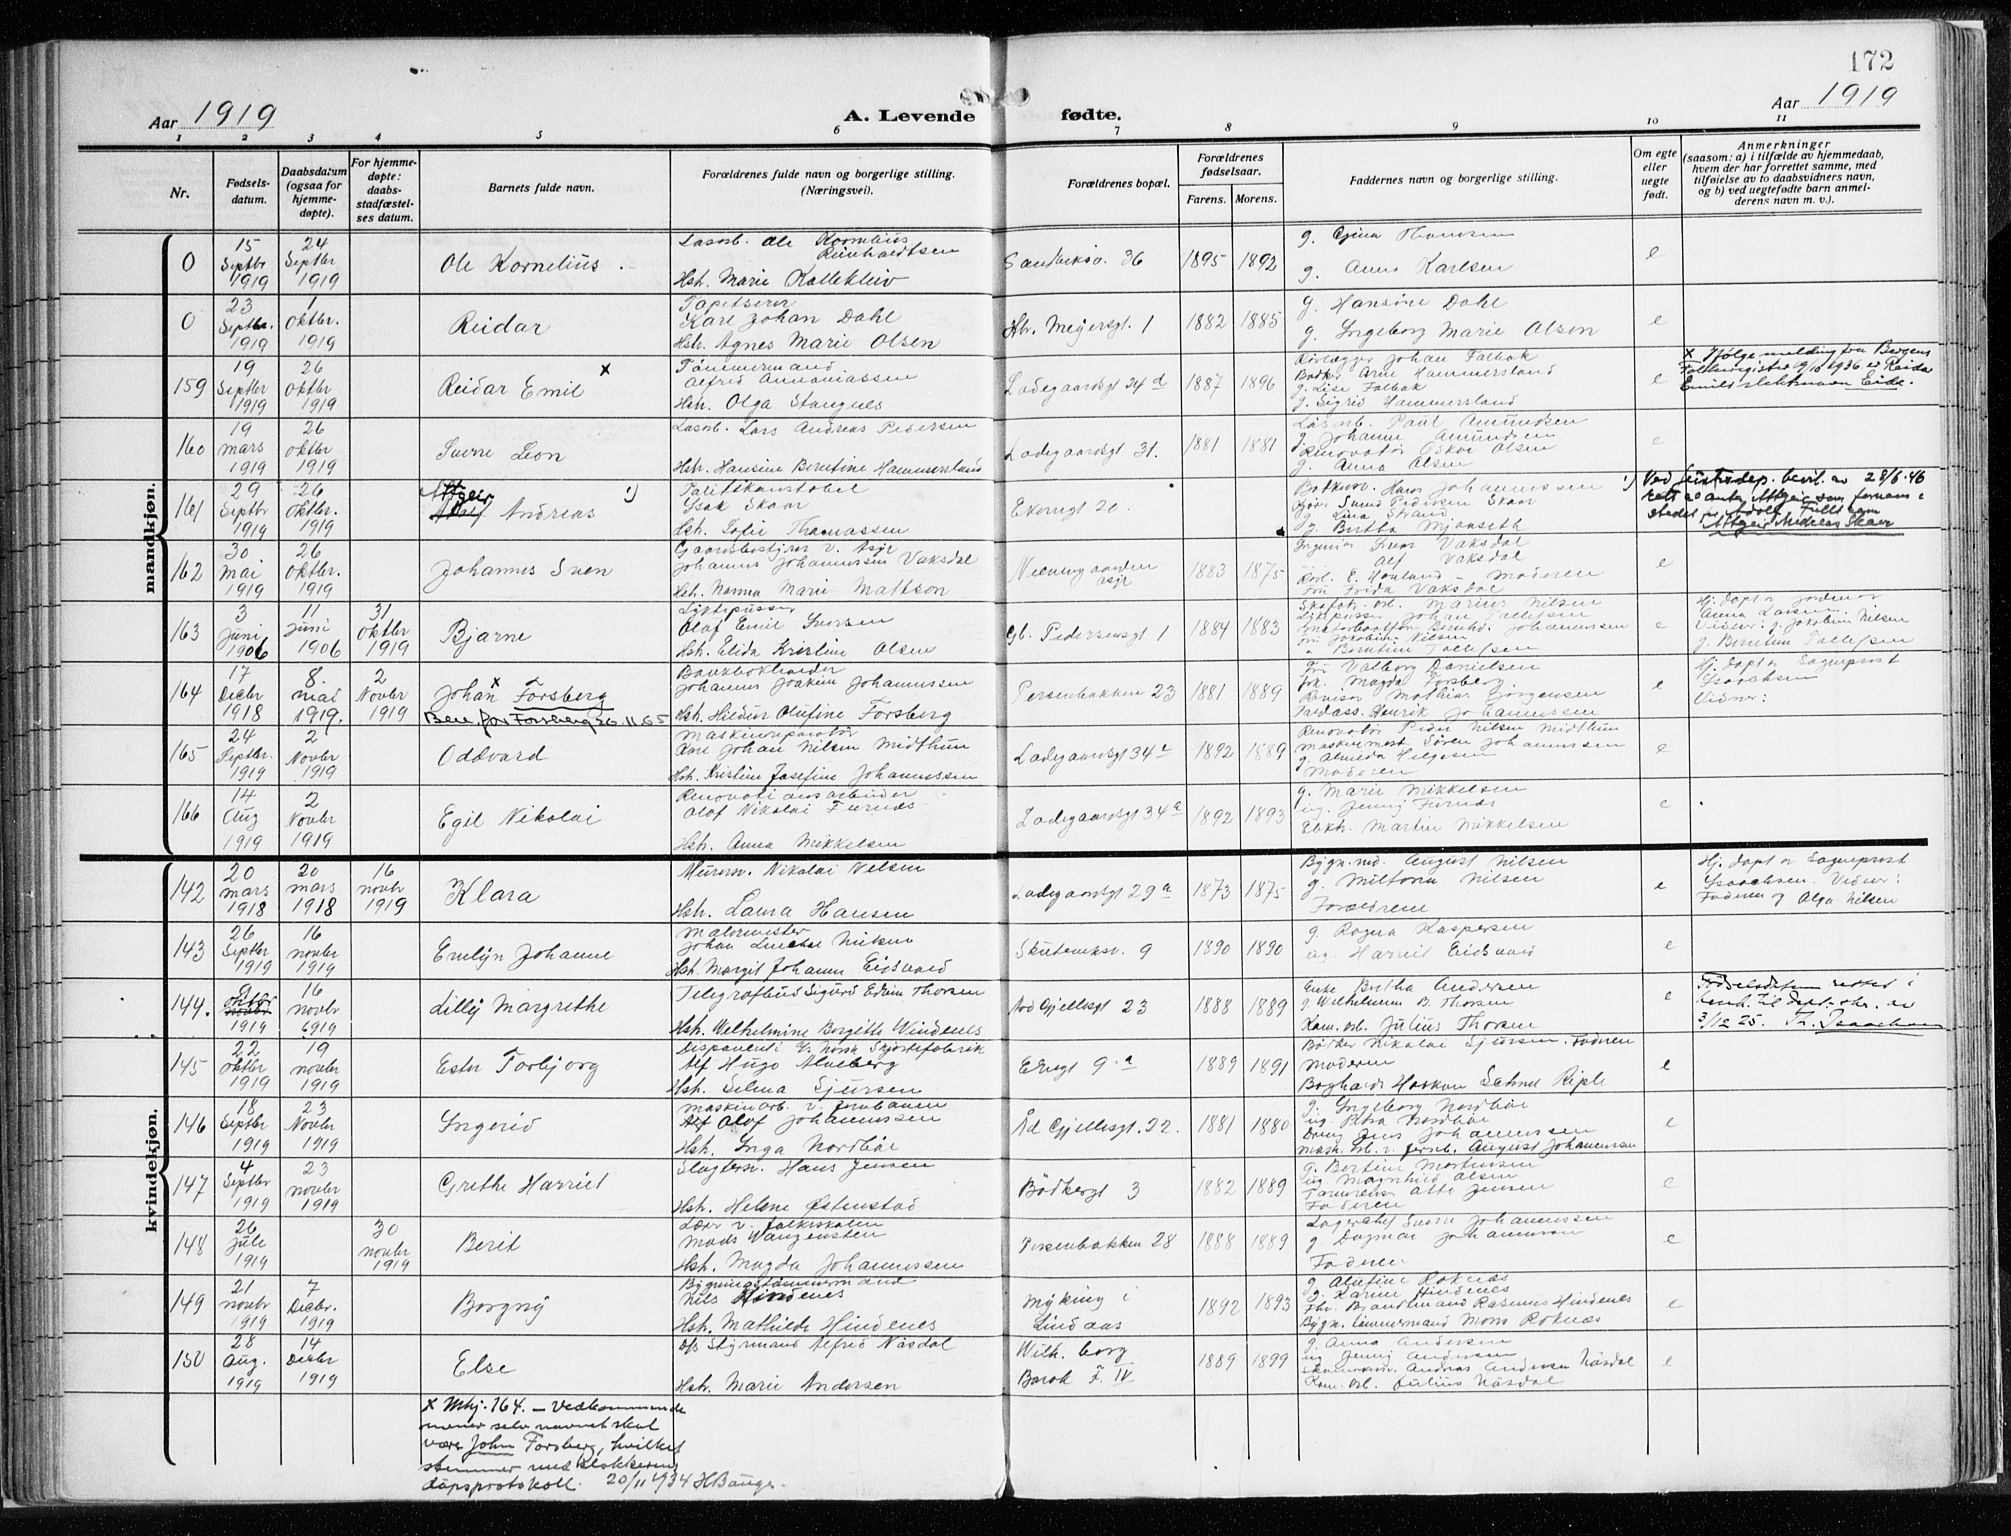 172
Aar 1919
A. Levende fødte.
Aar 1919
1 2 3 4 5 6 7 8 9 10 11
Nr.
Fødsels-
datum.
Daabsdatum
(ogsaa for
hjemme-
døpte).
For hjemme-
døpte:
daabs-
stadfæstel-
ses datum.
Barnets fulde navn.
Forældrenes fulde navn og borgerlige stilling.
(Næringsvei).
Forældrenes bopæl.
Forældrenes
fødselsaar.
Farens. Morens.
Faddernes navn og borgerlige stilling.
Om egte
eller
uegte
født.
Anmerkninger
(saasom: a) i tilfælde av hjemmedaab,
hvem der har forrettet samme, med
tilføielse av to daabsvidners navn,
og b) ved uegtefødte barn anmel-
derens navn m. v.).
mandkjøn.
0
15 Septbr 1919
24 Septbr 1919
Ole Kornelius
Løsarb. Ole Kornelius
Reinhardtsen
Hst. Marie Kalleklev
Sandviksv. 36
1895 1892
g. Gina Thomsen
g. Anna Karlsen
e
0
23 Septbr. 1919
1 Oktbr. 1919
Reidar
Tapetserer
Karl Johan Dahl
Hst. Agnes Marie Olsen
Hr. Meyersgt. 1
1882 1885
g. Hansine Dahl
g. Ingeborg Marie Olsen
e
159
19 Septbr 1919
26 Oktbr 1919
Reidar Emil x
Tømmermand
Alfred Annaniassen
Hst. Olga Stangnes
Ladegaardsgt 24 d
1887 1896
Rørlægger Johan Falbak
Bødker Arne Hammersland
g. Lise Falbak
g. Sigrid Hammersland
e
x Ifølge melding fra Bergens
Folkeregister 9/10 1936 er Reidar
Emils slektsnavn Eide.
160
19 mars 1919
26 Oktbr 1919
Sverre Leon
Løsarb. Lars Andreas Pedersen
Hst. Hansine Berntine Hammersland
Ladegaardsgt 31.
1881 1881
Løsarb. Paul Amundsen
g. Johanne Amundsen
Renovatør Oskar Olsen
g. Anna Olsen
e
161
29 Septbr 1919
26 Oktbr. 1919
Attgeir
Adolf Andreas 1)
Politikonstabel
Isak Skaar
Hst. Sofie Thomassen
Ekregt 20.
Hans Johannessen
Skaar
g. Lina Strand
g. Bertha Mjanseth
1) Ved Justisdep. bevil. av 28/6-46
rett til å anta Attgeir som fornavn i
stedet for Adolf. Fullt navn
Attgeir Andreas Skaar
162
30 Mai 1919
26 Oktbr. 1919
Johannes Sven
Gaardsbestyrer v. Asyl
Johannes Johannessen Vaksdal
Hst. Nanna Marie Mattson
asyl
1883 1875
Ingeniør Sven Vaksdal
Alf Vaksdal
E. Houland - Moderen
Frk Frida Vaksdal
e
163
3 Juni 1906
11 Juni 1906
31 Oktbr 1919
Bjarne
Lyktepusser
Olaf Emil Iversen
Hst. Elida Kristine Olsen
Gl. Pedersensgt 1
1884 1883
Skofab. arb. Marius Nilsen
Lyktepusser Johan Tollefsen
Johannessen
fru Jakobine Nilsen
" Berntine Tollefsen
e
Hj. døpt av Jordmor
Anna Larsen
Vidner: g. Jakobine Nilsen
g. Berntine Tollefsen
164
17 Decbr 1918
8. mai 1919.
2 Novbr 1919
Johan x Forsberg
Bev. for Forsberg 26.11.55
Bankbokholder
Johannes Joakim Johannessen
Hst. Hildur Olufine Forsberg
Persenbakken 23
1881 1889
Fru Valborg Danielsen
Frk. Magda Forsberg
Revisor Mathias Jørgensen
Henrik Johannessen
e
Hj. døpt av Sogneprest
Isaachsen
Vidner:
165
24 Septbr. 1919
2 Novbr 1919
Oddvard
Maskinreparatør
Karl Johan Nilsen Midthun
Hst. Kristine Josefine Johannessen
Ladegaardsgt 34 a
1892 1889
Renovatør Peder Nilsen Midthun
Maskinmest. Søren Johannessen
g. Almida Helgesen
Moderen
e
166
14 Aug 1919
2 Novbr 1919
Egil Nikolai
Renovationsarbeider
Olaf Nikolai Furnes
Hst. Anna Mikkelsen
Ladegaardsgt 34 a
1892 1893
g. Marie Mikkelsen
ug. Jenny Furnes
Martin Mikkelsen
e
kvindekjøn.
142
20 mars 1918
20 mars 1918
16 novbr 1919
Klara
Murerm. Nikolai Nilsen
Hst. Laura Hansen
Ladegaardsgt 29 a
1873 1875
August Nilsen
g. Miltona Nilsen
Forældrene
e
Hj. døpt av Sogneprest
Isaachsen. Vidner:
Faderen og Olga Nilsen
143
26 Septbr 1919
16 novbr 1919
Evelyn Johanne
Malermester
Johan Nilsen
Hst. Margit Johanne Eidsvaad
Skuteviksv. 9
1890 1890
g. Ragna Kaspersen
ug. Harriet Eidsvaad
e
144.
9 oktbr novbr 1919
16 novbr 1919
Lilly Margrethe
Telegrafbud Sigurd Edvin Thorsen
Hst. Welhelmine Borgitte Windenes
Nod Gjellesgt 23
1888 1889
Enke Bertha Andersen
g. Wilhelmine B. Thorsen
Kom. arb. Julius Thorsen
e
Fødselsdatum rettet i
henh. til dept. skr. av
3/12 25. Th. Isaachsen
145
22 oktbr 1919
19 novbr 1919
Ester Torbjørg
Disponent i Norsk Skjortefabrik
Alf Hugo Alveberg
Hst. Selma Sjursen
Ekregt 9 a
1889 1891
Bødker Nikolai Sjursen. Faderen
Moderen
Boghandl Haakon Schnel Riple
e
146
18 Septbr 1919
23 Novbr 1919
Ingerid
Maskinarb. v. Jernbanen
Alf Olaf Johannessen
Hst. Inga Nordbøe
Ad Gjellesgt. 22.
1881 1880
g. Ingeborg Nordbøe
ug. Petra Nordbøe
Dreng Jens Johannessen
mask. arb. v. Jernb. August Johannessen
e
147
4 Septbr 1919
23 novbr 1919
Grethe Harriet
Slagterm. Hans Jensen
Hst. Helene Østenstad
Bødkergt 3
1882 1889
g. Bertine Mortensen
ug Magnhild Olsen
Otto Jensen
Faderen
e
148
26 Jule 1919
30 novbr 1919
Berit
Lærer v. folkeskolen
Mads Wangensten
Hst. Magda Johannessen
Persenbakken 28
1888 1889
Lagerchef Sverre Johannessen
g. Dagmar Johannessen
Faderen
e
149
21 novbr 1919
7 Decbr. 1919
Borgny
Bygningstømmermand
Nils Hindenes
Hst. Mathilde Hindenes
Myking i
Lindaas
1892 1893
g. Olufine Roknes
g. Karine Hindenes
Fhv. Brandmand Rasmus Hindenes
Bygn. tømmermand Mons Roknes
e
150
28 Aug. 1919
14 Decbr 1919
Else
D/s Styrmand Alfred Näsdal
Hst. Marie Andersen
Wilh. borg
Barak F. IV
1889 1899
g. Anna Andersen
ug Jenny Andersen
Andreas Andersen Näsdal
Kom. arb. Julius Näsdal
e
x Mkj. 164. — Vedkommende
mener selv navnet skal
være John Forsberg, hvilket
stemmer med klokkerens
dåpsprotokoll. 20/11 1934 H Bauge.